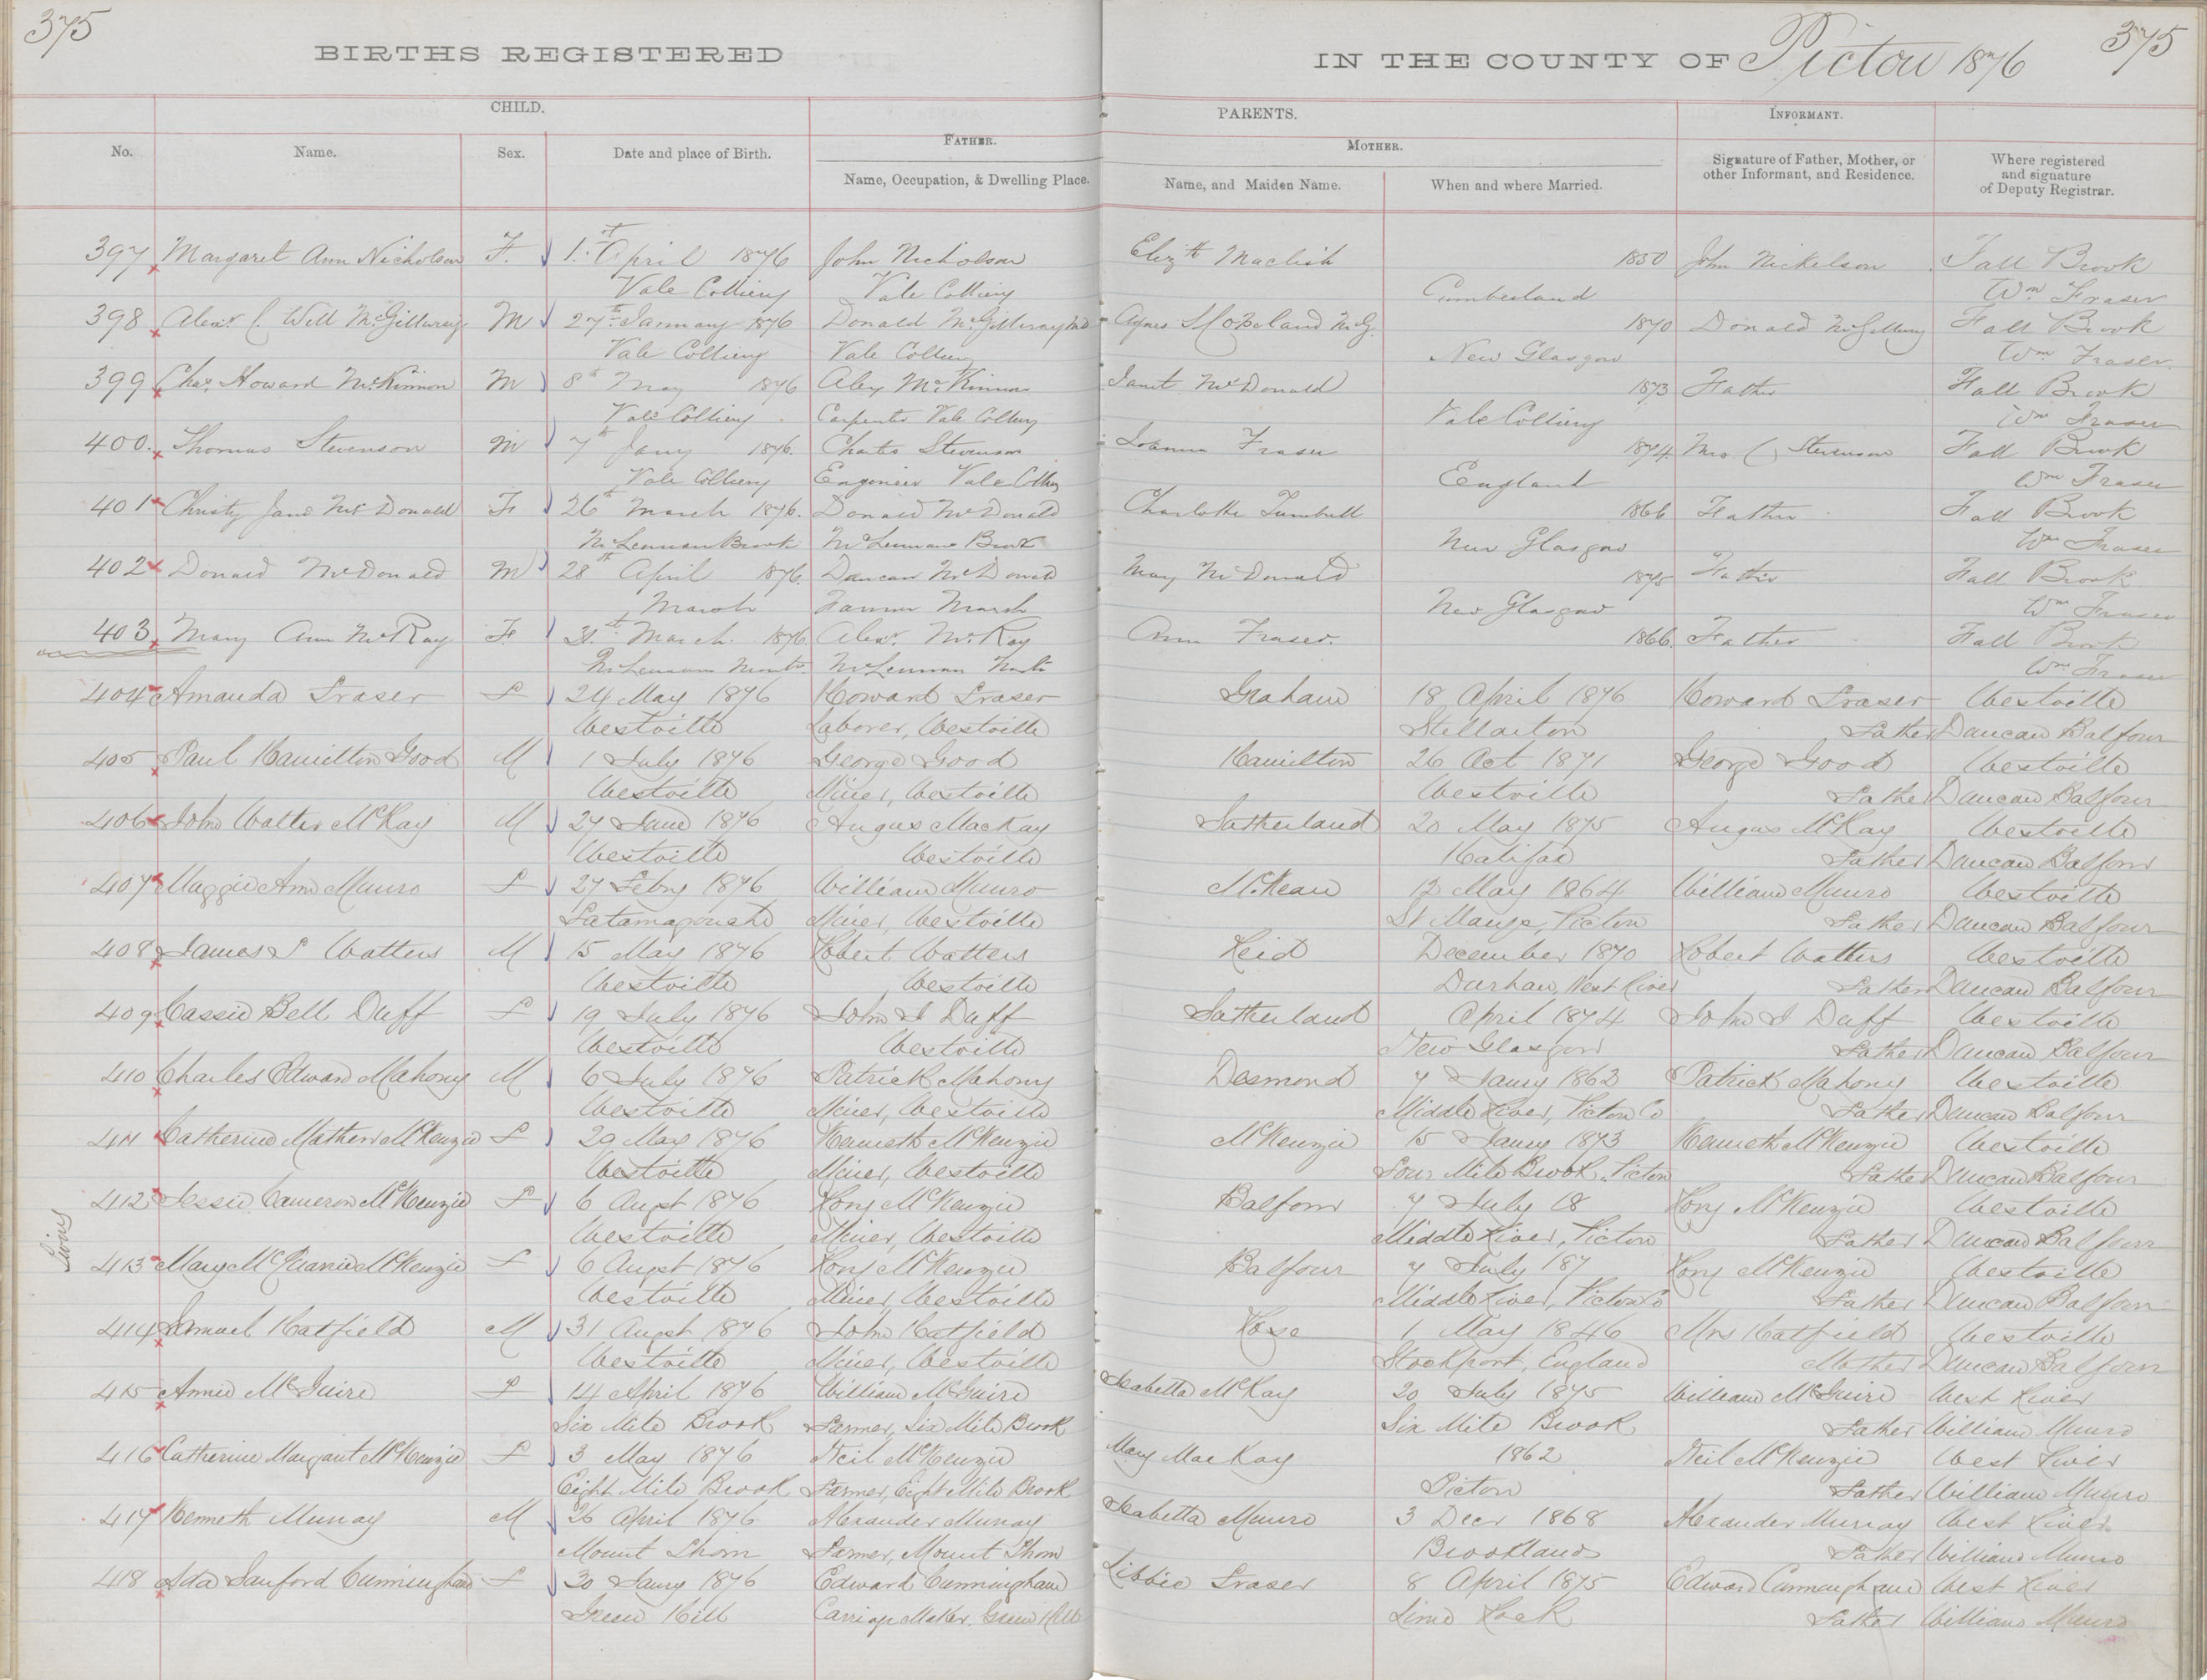 375
BIRTHS REGISTERED
IN THE COUNTY OF Pictou 1876
375
CHILD.
PARENTS.
INFORMANT.
No.
Name.
Sex.
Date and place of Birth.
FATHER.
Name, Occupation, & Dwelling Place.
MOTHER.
Name, and Maiden Name.
When and where Married.
Signature of Father, Mother, or
other Informant, and Residence.
Where registered
and signature
of Deputy Registrar.
397 Margaret Ann Nicholson F. 1st April 1876 John Nicholson Elizth 1850 John Nickelson Fall Brook
Vale Colliery Vale Colliery Cumberland Wm Fraser
398 Alexr C. Will McGillivray M 27th January 1876 Donald McGillivray Agnes McG. 1870 Donald McGillivray Fall Brook
Vale Colliery Vale Colliery New Glasgow Wm Fraser.
399 Chas Howard McKinnon M 8th May 1876 Alex McKinnon Janet McDonald 1873 Father Fall Brook
Vale Colliery Carpenter Vale Colliery Vale Colliery Wm Fraser
400. Thomas Stevenson M 7th Jany 1876. Charles Stevenson Fraser 1874. Mrs C Stevenson Fall Brook
Vale Colliery Engineer Vale Colliery England Wm Fraser
401 Christy Jane McDonald F 26th March 1876. Donald McDonald Charlotte Turnbull 1866 Father Fall Brook
McLennan Brook McLennans Brook New Glasgow Wm Fraser
402 Donald McDonald M 28th April 1876. Duncan McDonald May McDonald 1875 Father Fall Brook
Marsh Farmer Marsh New Glasgow Wm Fraser
403 Mary Ann McKay F 31st March. 1876. Alexr. McKay Ann Fraser. 1866. Father Fall Brook
McLennans Mount. McLennan Mount Wm Fraser
404 Amanda Fraser F 24 May 1876 Howard Fraser Graham 18 April 1876 Howard Fraser Westville
Westville Laborer, Westville Stellarton Father Duncan Balfour
405 Paul Hamilton Good M 1 July 1876 George Good Hamilton 26 Oct 1871 George Good Westville
Westville Miner, Westville Westville Father Duncan Balfour
406 John Walter McKay M 27 June 1876 Angus MacKay Sutherland 20 May 1875 Angus McKay Westville
Westville Westville Halifax Father Duncan Balfour
407 Maggie Ann Munro F 27 Febry 1876 William Munro McKean 12 May 1864 William Munro Westville
Tatamagouche Miner, Westville Manse, Pictou Father Duncan Balfour
408 James F Watters M 15 May 1876 Robert Watters Reid December 1870 Robert Watters Westville
Westville Westville Durham, West River Father Duncan Balfour
409 Cassie Bell Duff F 19 July 1876 John J Duff Sutherland April 1874 John J Duff Westville
Westville Westville New Glasgow Father Duncan Balfour
410 Charles Edward Mahony M 6 July 1876 Patrick Mahony Desmond 7 Jany 1863 Patrick Mahony Westville
Westville Miner, Westville Middle River, Pictou Co Father Duncan Balfour
411 Catherine Mather McKenzie F 29 May 1876 Kenneth McKenzie McKenzie 15 Jany 1873 Kenneth McKenzie Westville
Westville Miner, Westville Four Mile Brook, Pictou Father Duncan Balfour
412 Jessie Cameron McKenzie F 6 Augst 1876 Rory McKenzie Balfour 7 July 18 Rory McKenzie Westville
Twins
Westville Miner, Westville Middle River, Pictou Father Duncan Balfour
413 Mary McKenzie F 6 Augst 1876 Rory McKenzie Balfour 7 July 187 Rory McKenzie Westville
Westville Miner, Westville Middle River, Pictou Co Father Duncan Balfour
414 Samuel Hatfield M 31 Augst 1876 John Hatfield Rose 1 May 1846 Mrs Hatfield Westville
Westville Miner, Westville Stockport, England Mother Duncan Balfour
415 Annie McGuire F 14 April 1876 William McGuire Isabella McKay 20 July 1875 William McGuire West River
Six Mile Brook Farmer, Six Mile Brook Six Mile Brook Father William Munro
416 Catherine Margaret McKenzie F 3 May 1876 Neil McKenzie Mary MacKay 1862 Neil McKenzie West River
Eight Mile Brook Farmer, Eight Mile Brook Pictou Father William Munro
417 Kenneth Murray M 26 April 1876 Alexander Murray Isabella Munro 3 Decr 1868 Alexander Murray West River
Mount Thom Farmer, Mount Thom Brookland Father William Munro
418 Ada Sanford Cunningham F 30 Jany 1876 Edward Cunningham Libbie Fraser 8 April 1875 Edward Cunningham West River
Green Hill Carriage Maker, Green Hill Lime Rock Father William Munro